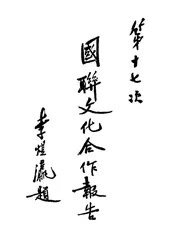 第十七次
國聯文化合作報告
李煜瀛題